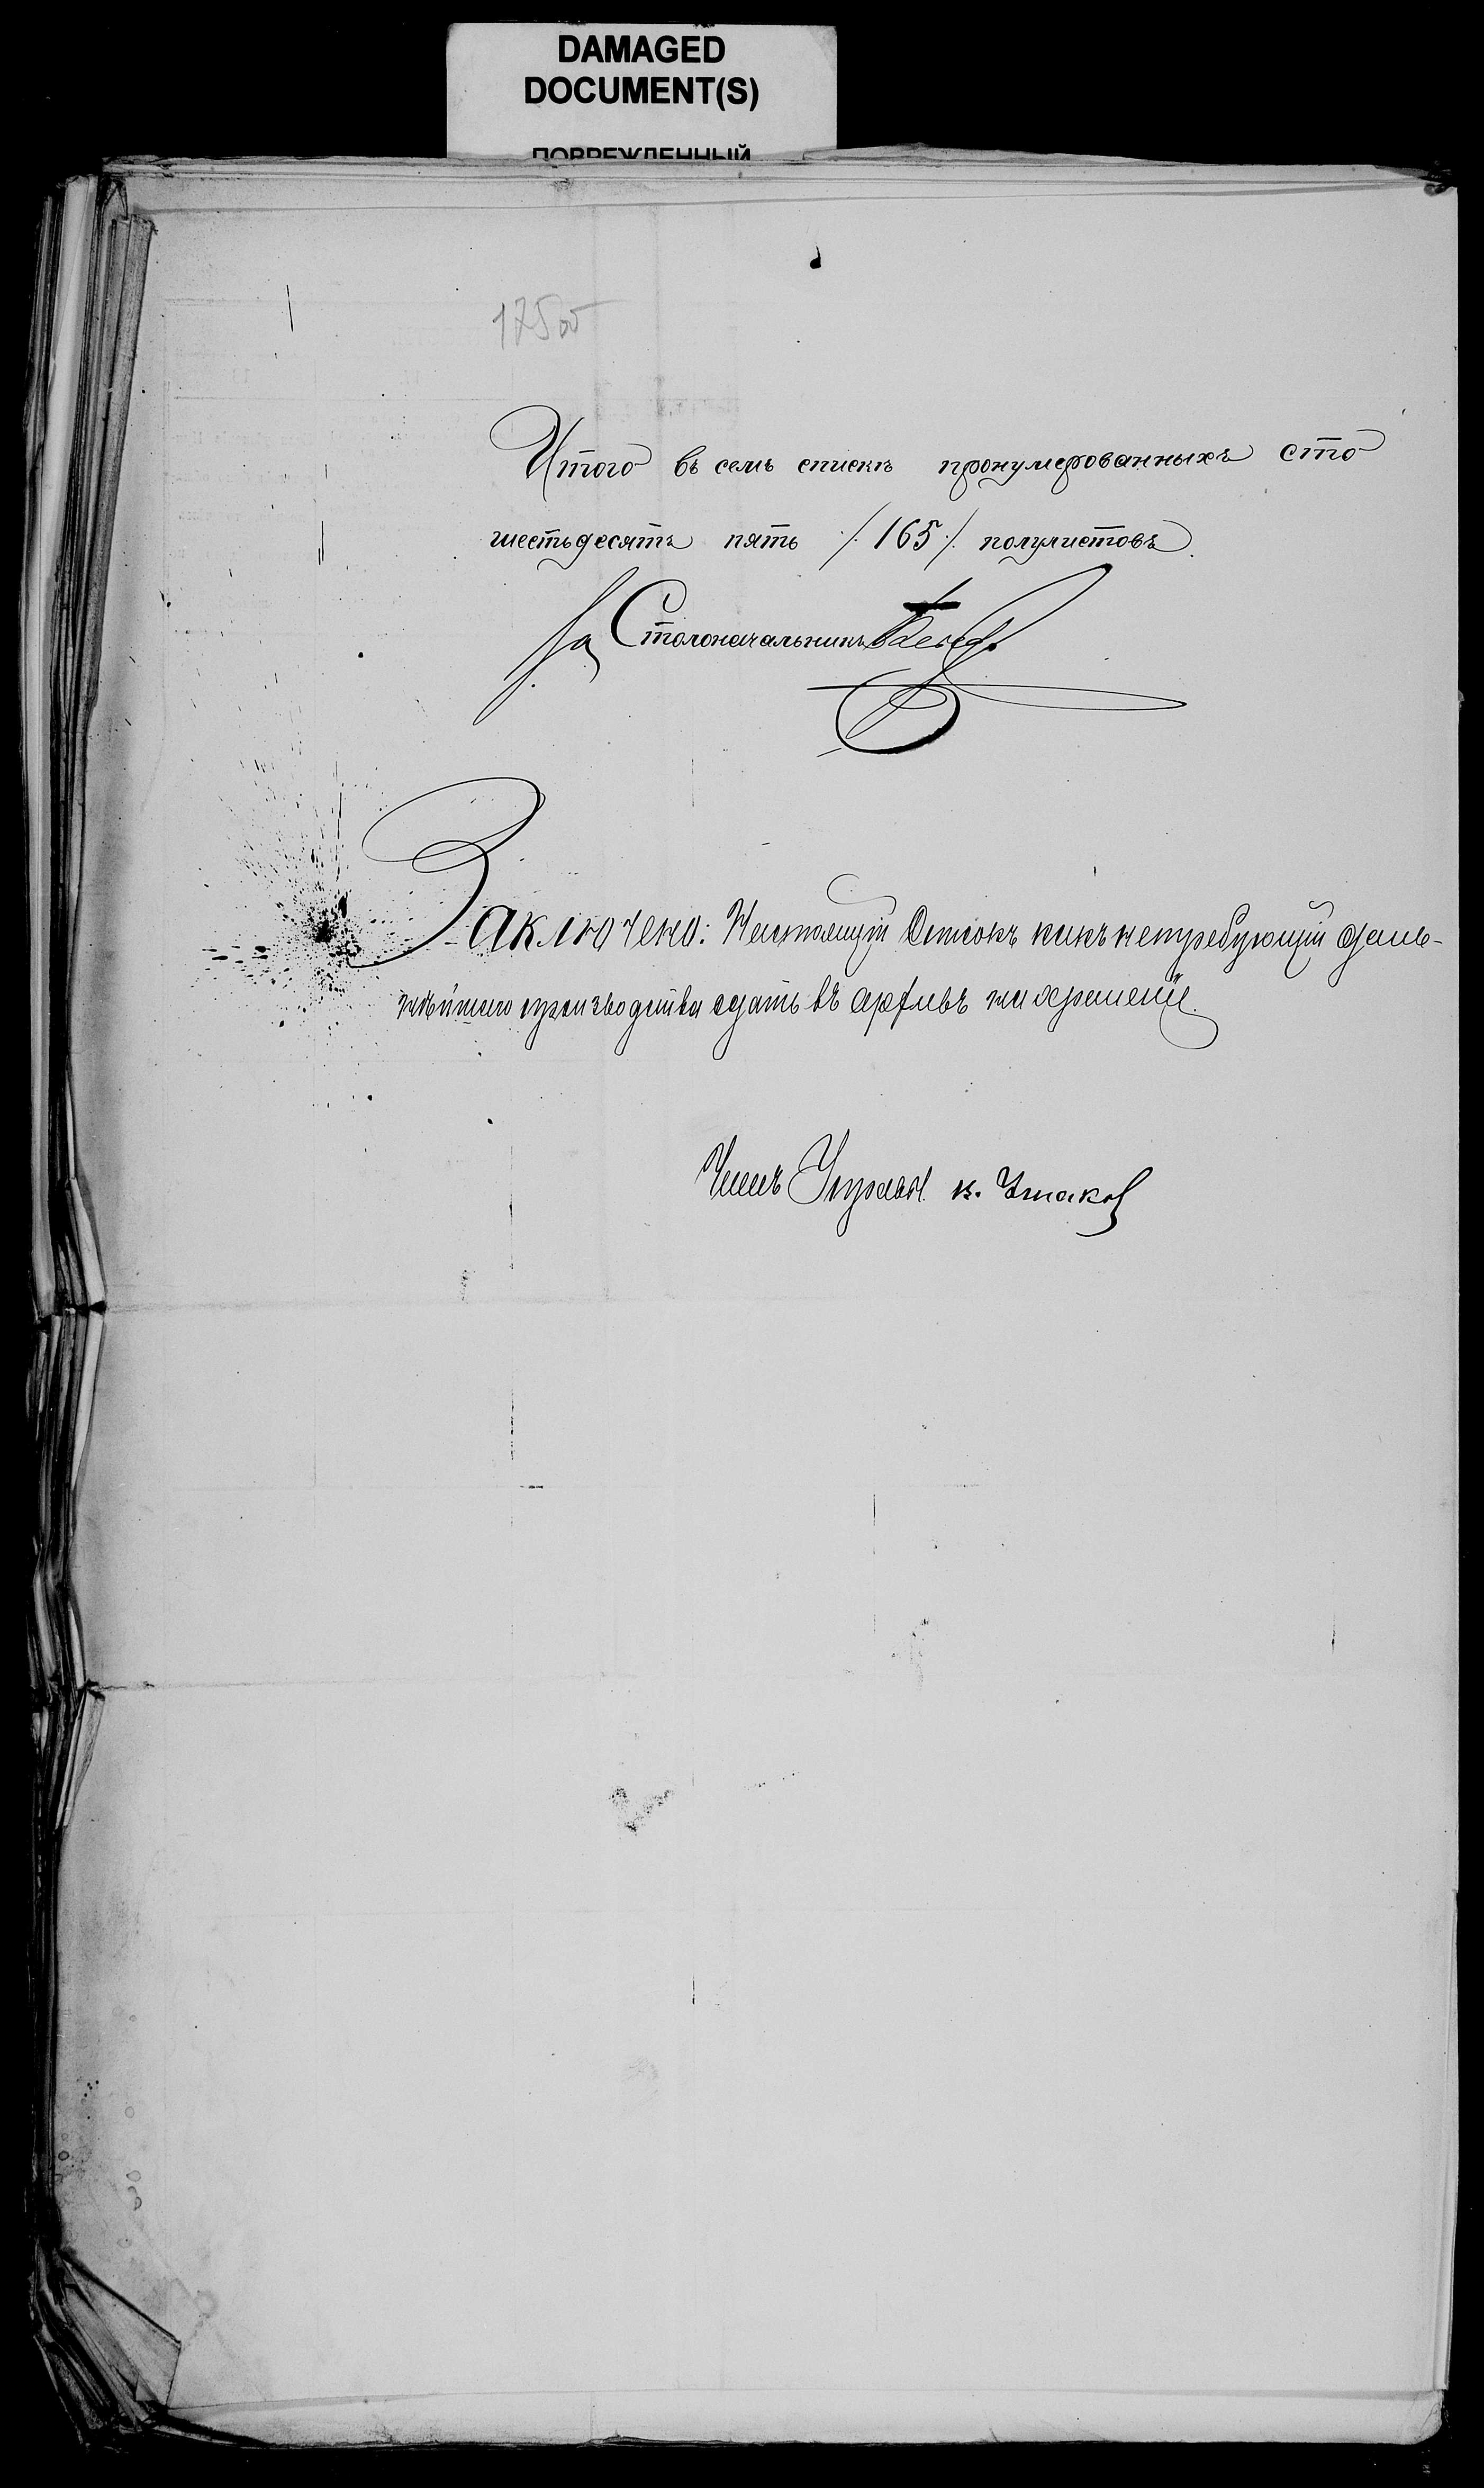 DAMAGED
DOCUMENT(S)
ПОВРЕЖДЕННЫЙ
175об
Итого въ семъ спискѣ пронумерованныхъ сто
шестьдесятъ пять /:165:/ полулистовъ.
За Столоначальника
Заключено: Настоящій Списокъ какъ нетребующій даль-
нѣйшаго производства сдать въ архивъ на храненіе.
Членъ Управы К. Ушаков